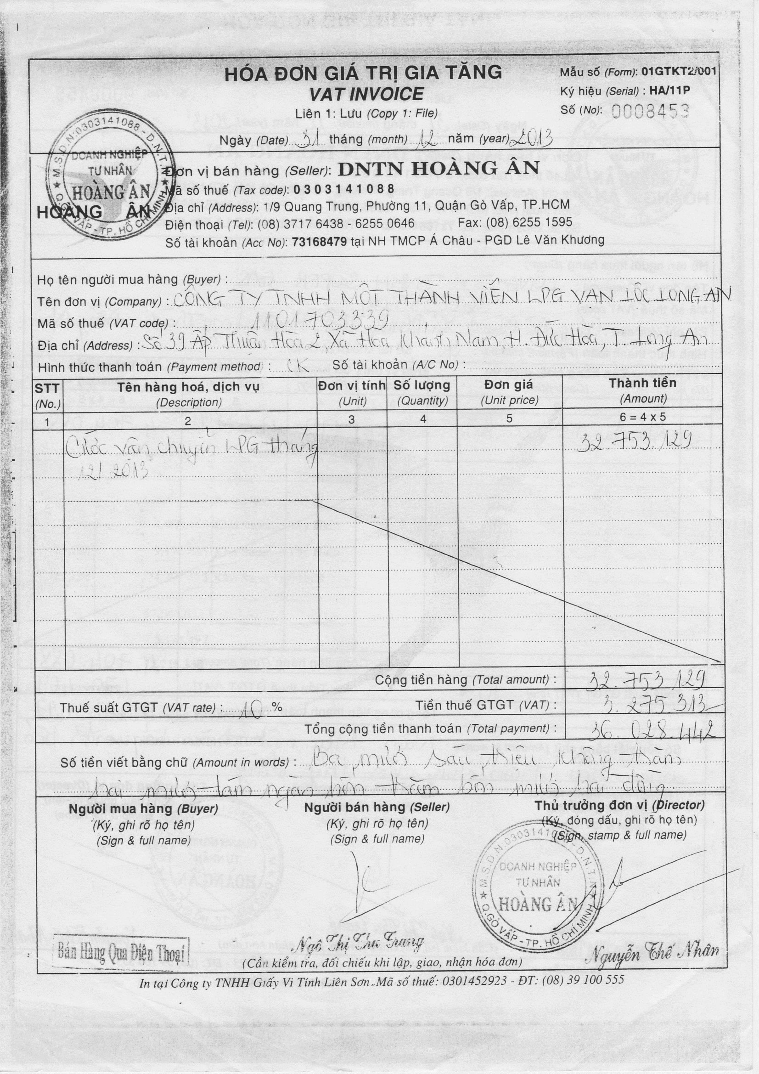 HÓA ĐƠN GIÁ TRỊ GIA TĂNG
VAT INVOICE
Liên 1: Lưu (Copy 1: File)
Ngày (Date) 31 tháng (month) 12 năm (year) 2013
Mẫu số (Form): 01GTKT2/001
Ký hiệu (Serial) : HA/11P
Số (No): 0008453
M.S.D.N:0303141088-D.N.T.N
DOANH NGHIỆP
TƯ NHÂN
HOÀNG ÂN
Q.GÒ VẤP-TP.HỒ CHÍ MINH
HOÀNG ÂN
Đơn vị bán hàng (Seller): DNTN HOÀNG ÂN
Mã số thuế (Tax code): 0303141088
Địa chỉ (Address): 1/9 Quang Trung, Phường 11, Quận Gò Vấp, TP.HCM
Điện thoại (Tel): (08) 3717 6438 - 6255 0646 Fax: (08) 6255 1595
Số tài khoản (Acc No): 73168479 tại NH TMCP Á Châu - PGD Lê Văn Khương
Họ tên người mua hàng (Buyer) :
Tên đơn vị (Company) : CÔNG TY TNHH MỘT THÀNH VIÊN LPG VẠN LỘC LONG AN
Mã số thuế (VAT code) : 1101703339
Địa chỉ (Address) : Số 39 Ấp Thuận Hòa 2, Xã Hòa Khánh Nam, H. Đức Hòa, T. Long An
Hình thức thanh toán (Payment method) : CK Số tài khoản (A/C No) :
STT Tên hàng hoá, dịch vụ Đơn vị tính Số lượng Đơn giá Thành tiền
(No.) (Description) (Unit) (Quantity) (Unit price) (Amount)
1 2 3 4 5 6 = 4 x 5
Cước vận chuyển LPG tháng 32.753.129
12/2013
Cộng tiền hàng (Total amount) : 32.753.129
Thuế suất GTGT (VAT rate) : 10 % Tiền thuế GTGT (VAT) : 3.275.313
Tổng cộng tiền thanh toán (Total payment) : 36.028.442
Số tiền viết bằng chữ (Amount in words) : Ba mươi sáu triệu không trăm
hai mươi tám ngàn bốn trăm bốn mươi hai đồng
Người mua hàng (Buyer) Người bán hàng (Seller) Thủ trưởng đơn vị (Director)
(Ký, ghi rõ họ tên) (Ký, ghi rõ họ tên) (Ký, đóng dấu, ghi rõ họ tên)
(Sign & full name) (Sign & full name) (Sign, stamp & full name)
M.S.D.N:0303141088-D.N.T.N
DOANH NGHIỆP
TƯ NHÂN
HOÀNG ÂN
Q.GÒ VẤP-TP.HỒ CHÍ MINH
Bán Hàng Qua Điện Thoại Ngô Thị Thu Trang Nguyễn Thế Nhân
(Cần kiểm tra, đối chiếu khi lập, giao, nhận hóa đơn)
In tại Công ty TNHH Giấy Vi Tính Liên Sơn. Mã số thuế: 0301452923 - ĐT: (08) 39 100 555